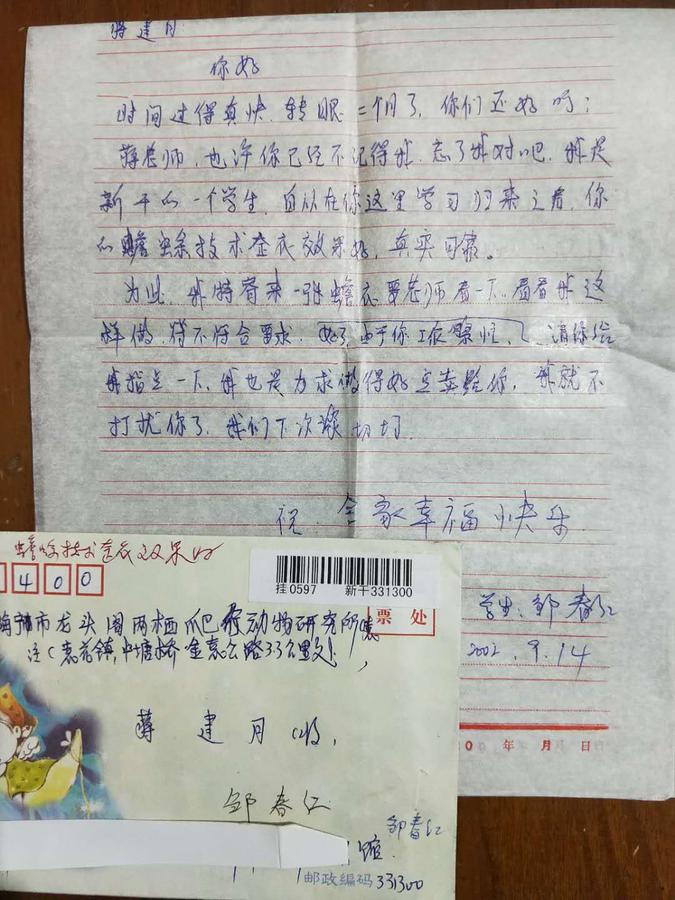 蒋建月
你好
时间过得真快,转眼二个月了,你们还好吗;
蒋老师,也许你已经不记得我,忘了我对吧,我是
新干的一个学生,自从在你这里学习归来之后,你
的蟾蜍技术蜕衣效果好,真实可靠。
为此,我特寄来一张蟾衣要老师看一下,看看我这
样做,符不符合要求,好了,由于你工作繁忙,请你给
我指点一下,我也是力求做得好点卖给你,我就不
打扰你了,我们下次
祝:合家幸福快乐
学生:邹春红
2002.9.14
年 月 日
蟾蜍技术蜕衣效果好
400
挂0597 新干331300
票处
海宁市龙头阁两栖爬行动物研究所
(袁花镇,
蒋建月收,
邹春红
邹春红
馆.
邮政编码331300